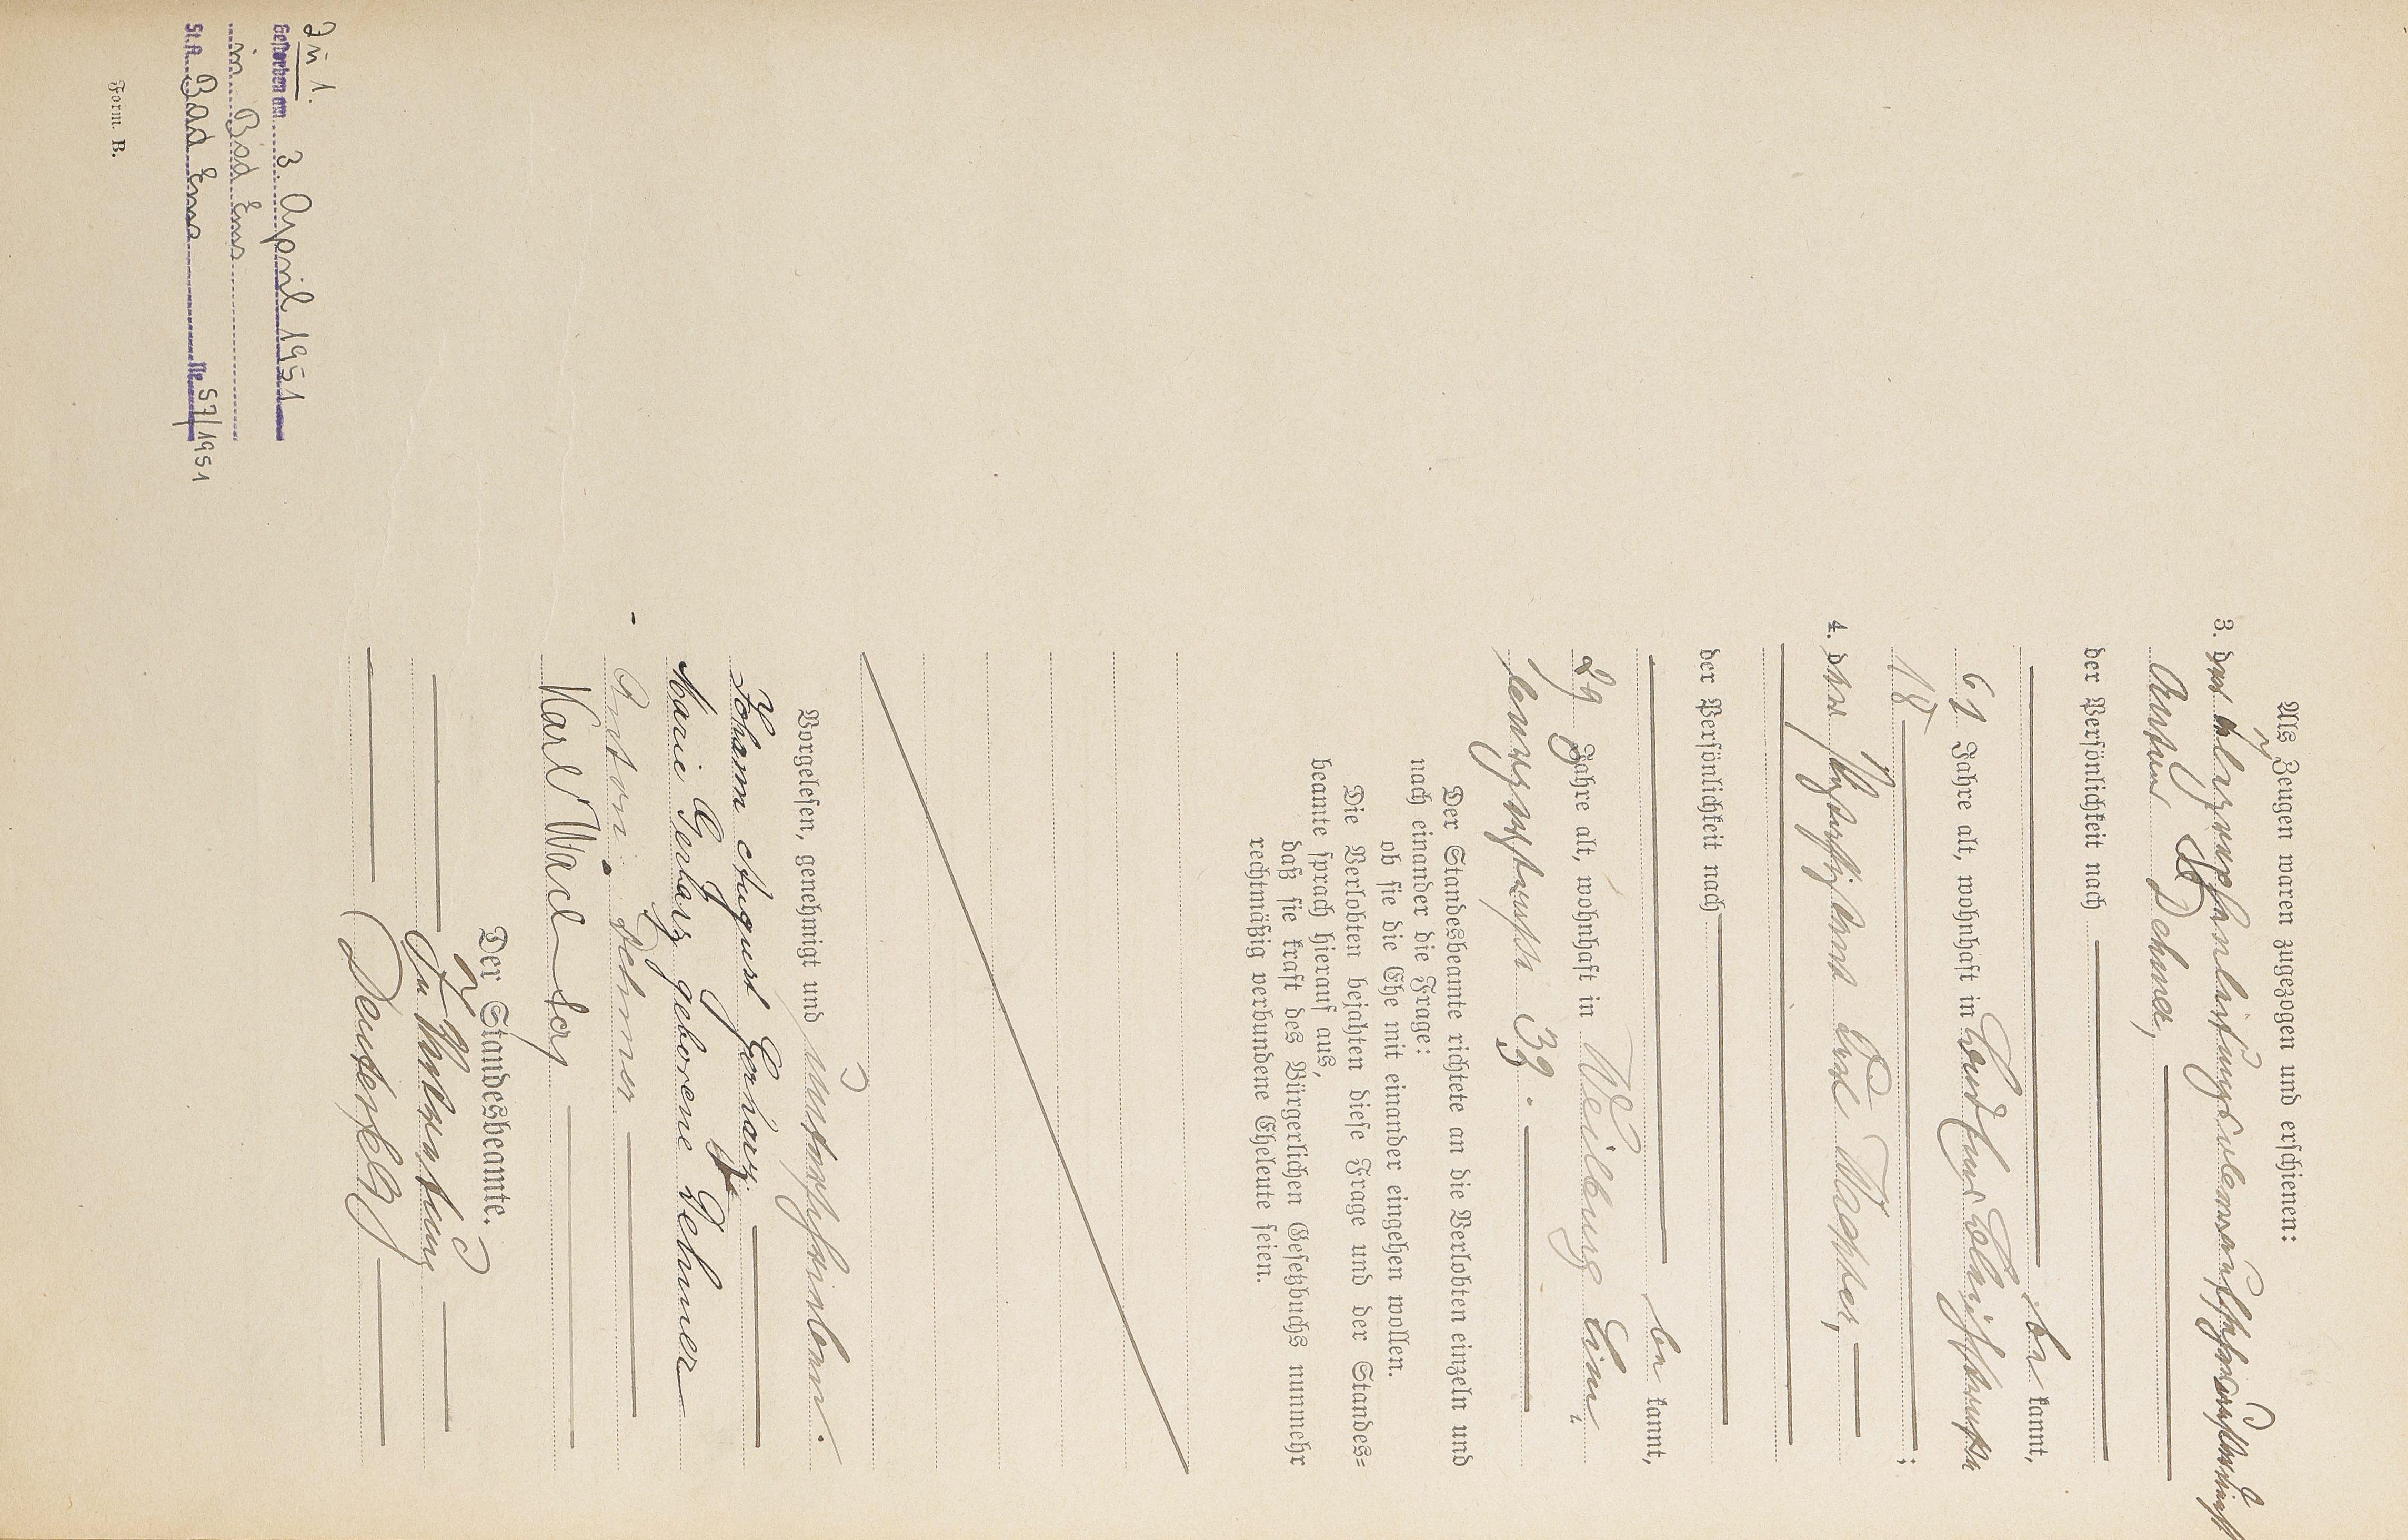 Als Zeugen waren zugezogen und erschienen:
3. der
Anton Dehner,
der Persönlichkeit nach
be kannt,
61 Jahre alt, wohnhaft in Bad Ems,
18 ;
4. der Carl Wachter,
der Persönlichkeit nach
be kannt,
29 Jahre alt, wohnhaft in Weilburg Lim,
39.
Der Standesbeamte richtete an die Verlobten einzeln und
nach einander die Frage:
ob sie die Ehe mit einander eingehen wollen.
Die Verlobten bejahten diese Frage und der Standes=
beamte sprach hierauf aus,
daß sie kraft des Bürgerlichen Gesetzbuchs nunmehr
rechtmäßig verbundene Eheleute seien.
Vorgelesen, genehmigt und unterschrieben.
Johann August Gerharz
Marie Gerharz geborene Dehner
Anton Dehner
Karl
Der Standesbeamte.
In Vertretung
Zu 1.
Gestorben am 3. April 1951
in Bad Ems
St.A. Bad Ems Nr. 57/1951
Form. B.